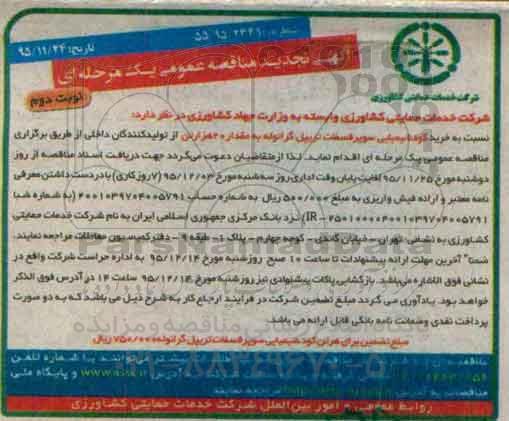 شماره: ۲۳۴۱-۹۵-۵۵
تاریخ: ۹۵/۱۱/۲۴
آگهی تجدید مناقصه عمومی یک مرحله ای
نوبت دوم
شرکت خدمات حمایتی کشاورزی
شرکت خدمات حمایتی کشاورزی وابسته به وزارت جهاد کشاورزی در نظر دارد:
نسبت به خرید کود شیمیایی سوپر فسفات تریپل گرانوله به مقدار ده هزار تن از تولیدکنندگان داخلی از طریق برگزاری
مناقصه عمومی یک مرحله ای اقدام نماید. لذا از متقاضیان دعوت می گردد جهت دریافت اسناد مناقصه از روز
دوشنبه مورخ ۹۵/۱۱/۲۵ لغایت پایان وقت اداری روز سه شنبه مورخ ۹۵/۱۲/۰۳ (۷ روز کاری) با در دست داشتن معرفی
نامه معتبر و ارائه فیش واریزی به مبلغ ۵۰۰/۰۰۰ ریال به شماره حساب ۴۰۰۱۰۳۹۷۰۴۰۰۵۷۹۱ (به شماره شبا
IR-۲۵۰۱۰۰۰۰۴۰۰۱۰۳۹۷۰۴۰۰۵۷۹۱) نزد بانک مرکزی جمهوری اسلامی ایران به نام شرکت خدمات حمایتی
کشاورزی به نشانی تهران - خیابان گاندی - کوچه چهارم - پلاک ۱- طبقه ۹ - دفتر کمیسیون معاملات مراجعه نمایند.
ضمنا" آخرین مهلت ارائه پیشنهادات تا ساعت ۱۰ صبح روز شنبه مورخ ۹۵/۱۲/۱۴ به اداره حراست شرکت واقع در
نشانی فوق الاشاره می باشد. بازگشایی پاکات پیشنهادی نیز روز شنبه مورخ ۹۵/۱۲/۱۴ ساعت ۱۴ در آدرس فوق الذکر
خواهد بود. یادآوری می گردد مبلغ تضمین شرکت در فرایند ارجاع کار به شرح ذیل می باشد که به دو صورت
پرداخت نقدی و ضمانت نامه بانکی قابل ارائه می باشد.
مبلغ تضمین برای هر تن کود شیمیایی سوپر فسفات تریپل گرانوله ۷۵۰/۰۰۰ ریال
روابط عمومی و امور بین الملل شرکت خدمات حمایتی کشاورزی
ParsNamadData
۰۲۱-۸۸۳۴۹۶۷۰-۵